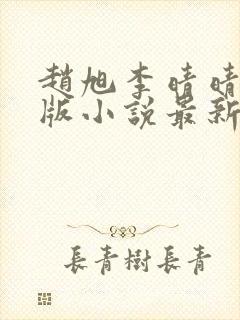 趙旭李晴晴
版小說最新
長青樹長青